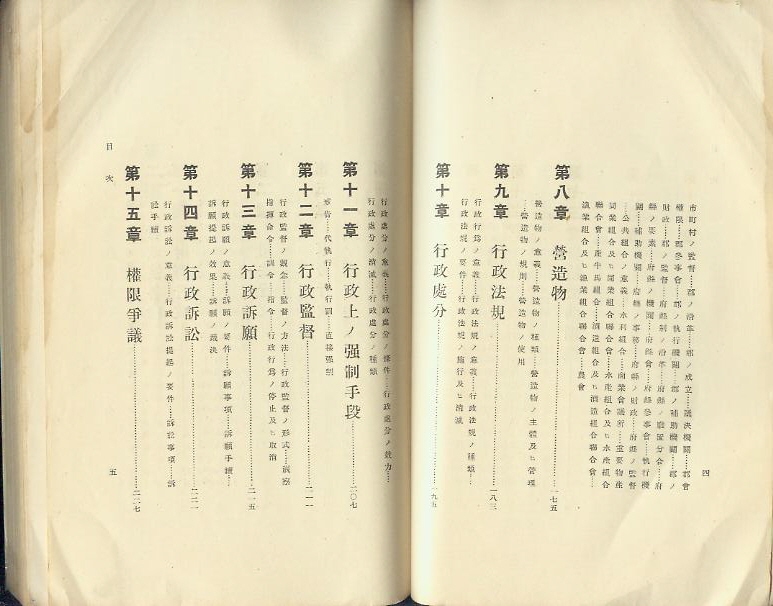 市町村ノ監督……郡ノ沿革……郡ノ成立……議決機關……郡會
權限……郡參事會……郡ノ執行機關……郡ノ補助機關……郡ノ
財政……郡ノ監督……府縣制ノ沿革……府縣ノ廢置分合……府
縣ノ要素……府縣ノ機關……府縣會……府縣參事會……執行機
關……補助機關……府縣ノ事務……府縣ノ財政……府縣ノ監督
……公共組合ノ意義……水利組合……商業會議所……重要物産
同業組合及ヒ同業組合聯合會……水産組合及ヒ水産組合
聯合會……産牛馬組合……酒造組合及ヒ酒造組合聯合會……
漁業組合及ヒ漁業組合聯合會……農會
第八章 營造物……一七五
營造物ノ意義……營造物ノ種類……營造物ノ主體及ヒ管理
……營造物ノ規則……營造物ノ使用
第九章 行政法規……一八三
行政行爲ノ意義……行政法規ノ意義……行政法規ノ種類……
行政法規ノ要件……行政法規ノ施行及ヒ消滅
第十章 行政處分……一九五
四
行政處分ノ意義……行政處分ノ條件……行政處分ノ效力……
行政處分ノ消滅……行政處分ノ種類
第十一章 行政上ノ强制手段……二〇七
戒告……代執行……執行罰……直接强制
第十二章 行政監督……二一一
行政監督ノ觀念……監督ノ方法……行政監督ノ形式……視察
指揮命令……訓令……指令……行政行爲ノ停止及ヒ取消
第十三章 行政訴願……二一五
行政訴願ノ意義……訴願ノ要件……訴願事項……訴願手續……
訴願提起ノ效果……訴願ノ裁決
第十四章 行政訴訟……二二一
行政訴訟ノ意義……行政訴訟提起ノ要件……訴訟事項……訴
訟手續
第十五章 權限爭議……二二七
目次
五